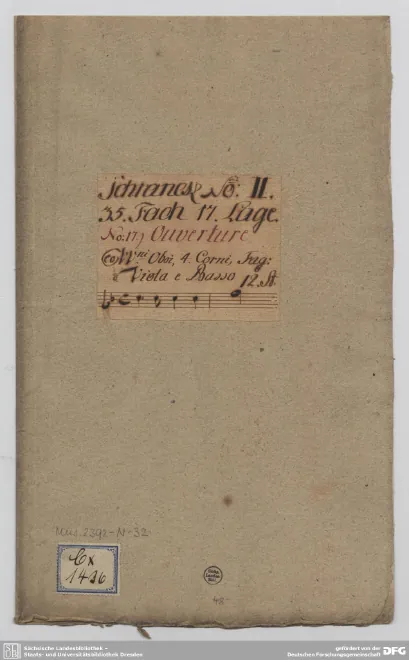 Schranck No: II.
35. Fach 17. Lage.
No: 17.) Ouverture
co VVni Oboi, 4. Corni, Fag:
Viola e Basso
12. St.
Mus. 2392-N-32
Cx
1426
48
SLUB
Sächsische Landesbibliothek -
Staats- und Universitätsbibliothek Dresden
gefördert von der
Deutschen Forschungsgemeinschaft DFG